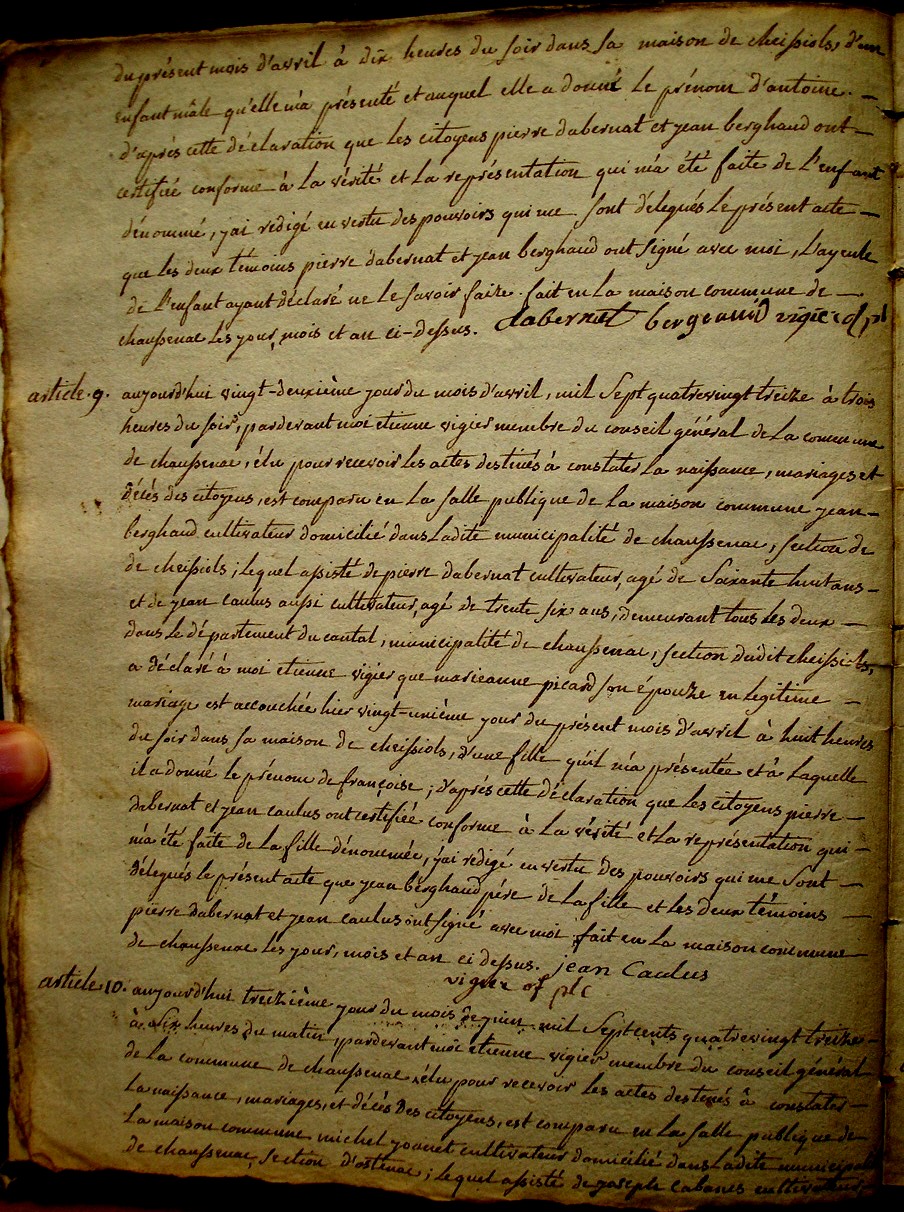 du présent mois d'avril à dix heures du soir dans sa maison de cheissiols, d'un
enfant mâle qu'elle m'a présenté et auquel elle a donné le prénom d'antoine. —
d'après cette déclaration que les citoyens pierre dabernat et jean berghaud ont —
certifiée conforme à la vérité et la représentation qui m'a été faite de l'enfant
dénommé, j'ai rédigé en vertu des pouvoirs qui me sont délegués le présent acte —
que les deux témoins pierre dabernat et jean berghaud ont signé avec moi, l'ayeule
de l'enfant ayant déclaré ne le savoir faire. fait en la maison commune de —
chaussenac les jour, mois et an ci-dessus. dabernat bergeaud vigier of, pl
article 9. aujourd'hui vingt-deuxième jour du mois d'avril, mil sept quatrevingt treize à trois
heures du soir, pardevant moi etienne vigier membre du conseil général de la commune
de chaussenac, élu pour recevoir les actes destinés à constater la naissance, mariages et
décés des citoyens, est comparu en la salle publique de la maison commune jean —
berghaud cultivateur domicilié dans ladite municipalité de chaussenac, section de
de cheissiols; lequel assisté de pierre dabernat cultivateur, agé de soixante huit ans —
et de jean caulus aussi cultivateur, agé de trente six ans, demeurant tous les deux —
dans le département du cantal, municipalité de chaussenac, section dudit cheissiols,
a déclaré à moi etienne vigier que marieanne picard son épouze en legitime —
mariage est accouchée hier vingt-unième jour du présent mois d'avril à huit heures
du soir dans sa maison de cheissiols, d'une fille qu'il m'a présentée et à laquelle
il a donné le prénom de françoise; d'après cette déclaration que les citoyens pierre —
dabernat et jean caulus ont certifiée conforme à la vérité et la représentation qui —
m'a été faite de la fille dénommée, j'ai rédigé en vertu des pouvoirs qui me sont —
délegués le présent acte que jean berghaud pére de la fille et les deux témoins —
pierre dabernat et jean caulus ont signé avec moi fait en la maison commune
de chaussenac les jour, mois et an ci dessus. jean Caulus
vigier of plc
article 10. aujourd'hui treizième jour du mois de juin mil sept cents quatrevingt treize —
à six heures du matin, pardevant moi etienne vigier membre du conseil général
de la commune de chaussenac élu pour recevoir les actes destinés à constater —
la naissance, mariages, et décés des citoyens, est comparu en la salle publique de
la maison commune michel joanet cultivateur domicilié dans ladite municipalité
de chaussenac, section d'ostenac; lequel assisté de joseph cabanes cultivateur